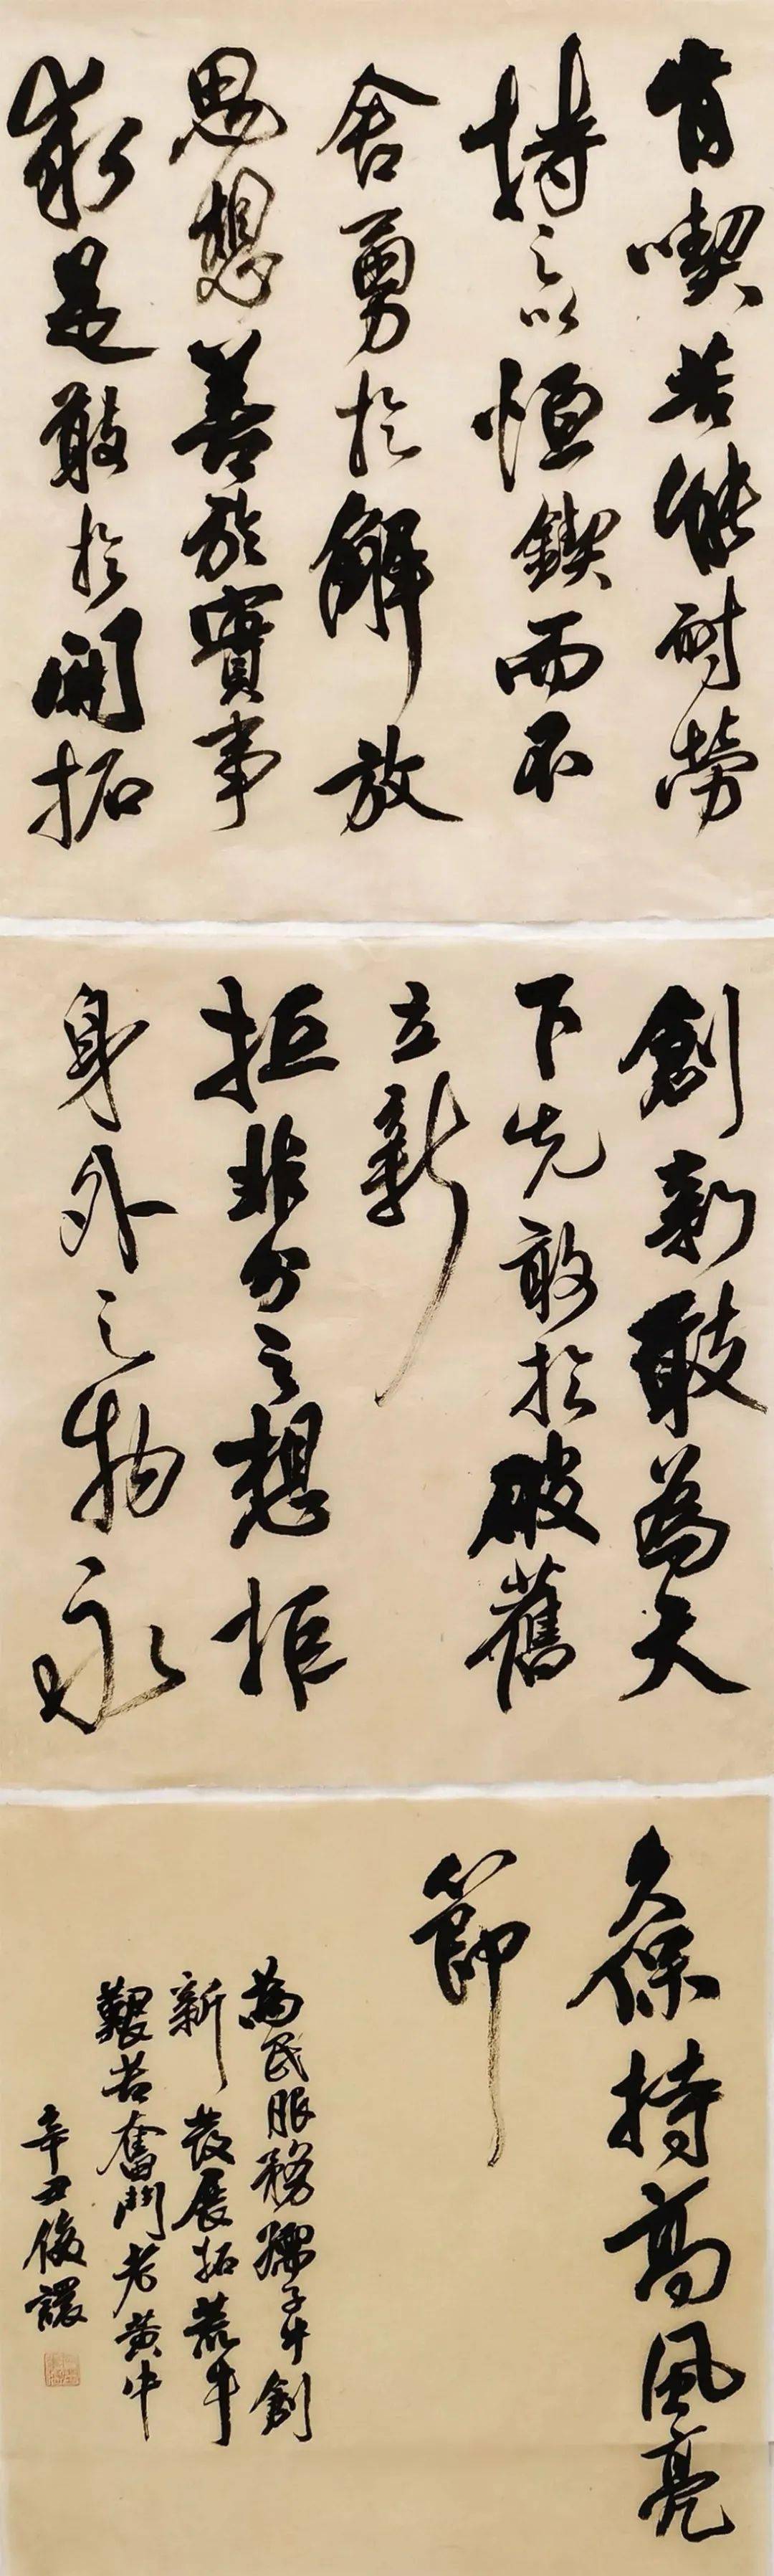 肯喫苦能耐勞
持之以恒鍥而不
舍勇於解放
思想善於實事
求是敢於開拓
創新敢為天
下先敢於破舊
立新
拒非分之想拒
身外之物永
久保持高風亮
節
為民服務孺子牛創
新發展拓荒牛
艱苦奮鬥老黃牛
辛丑俊譞